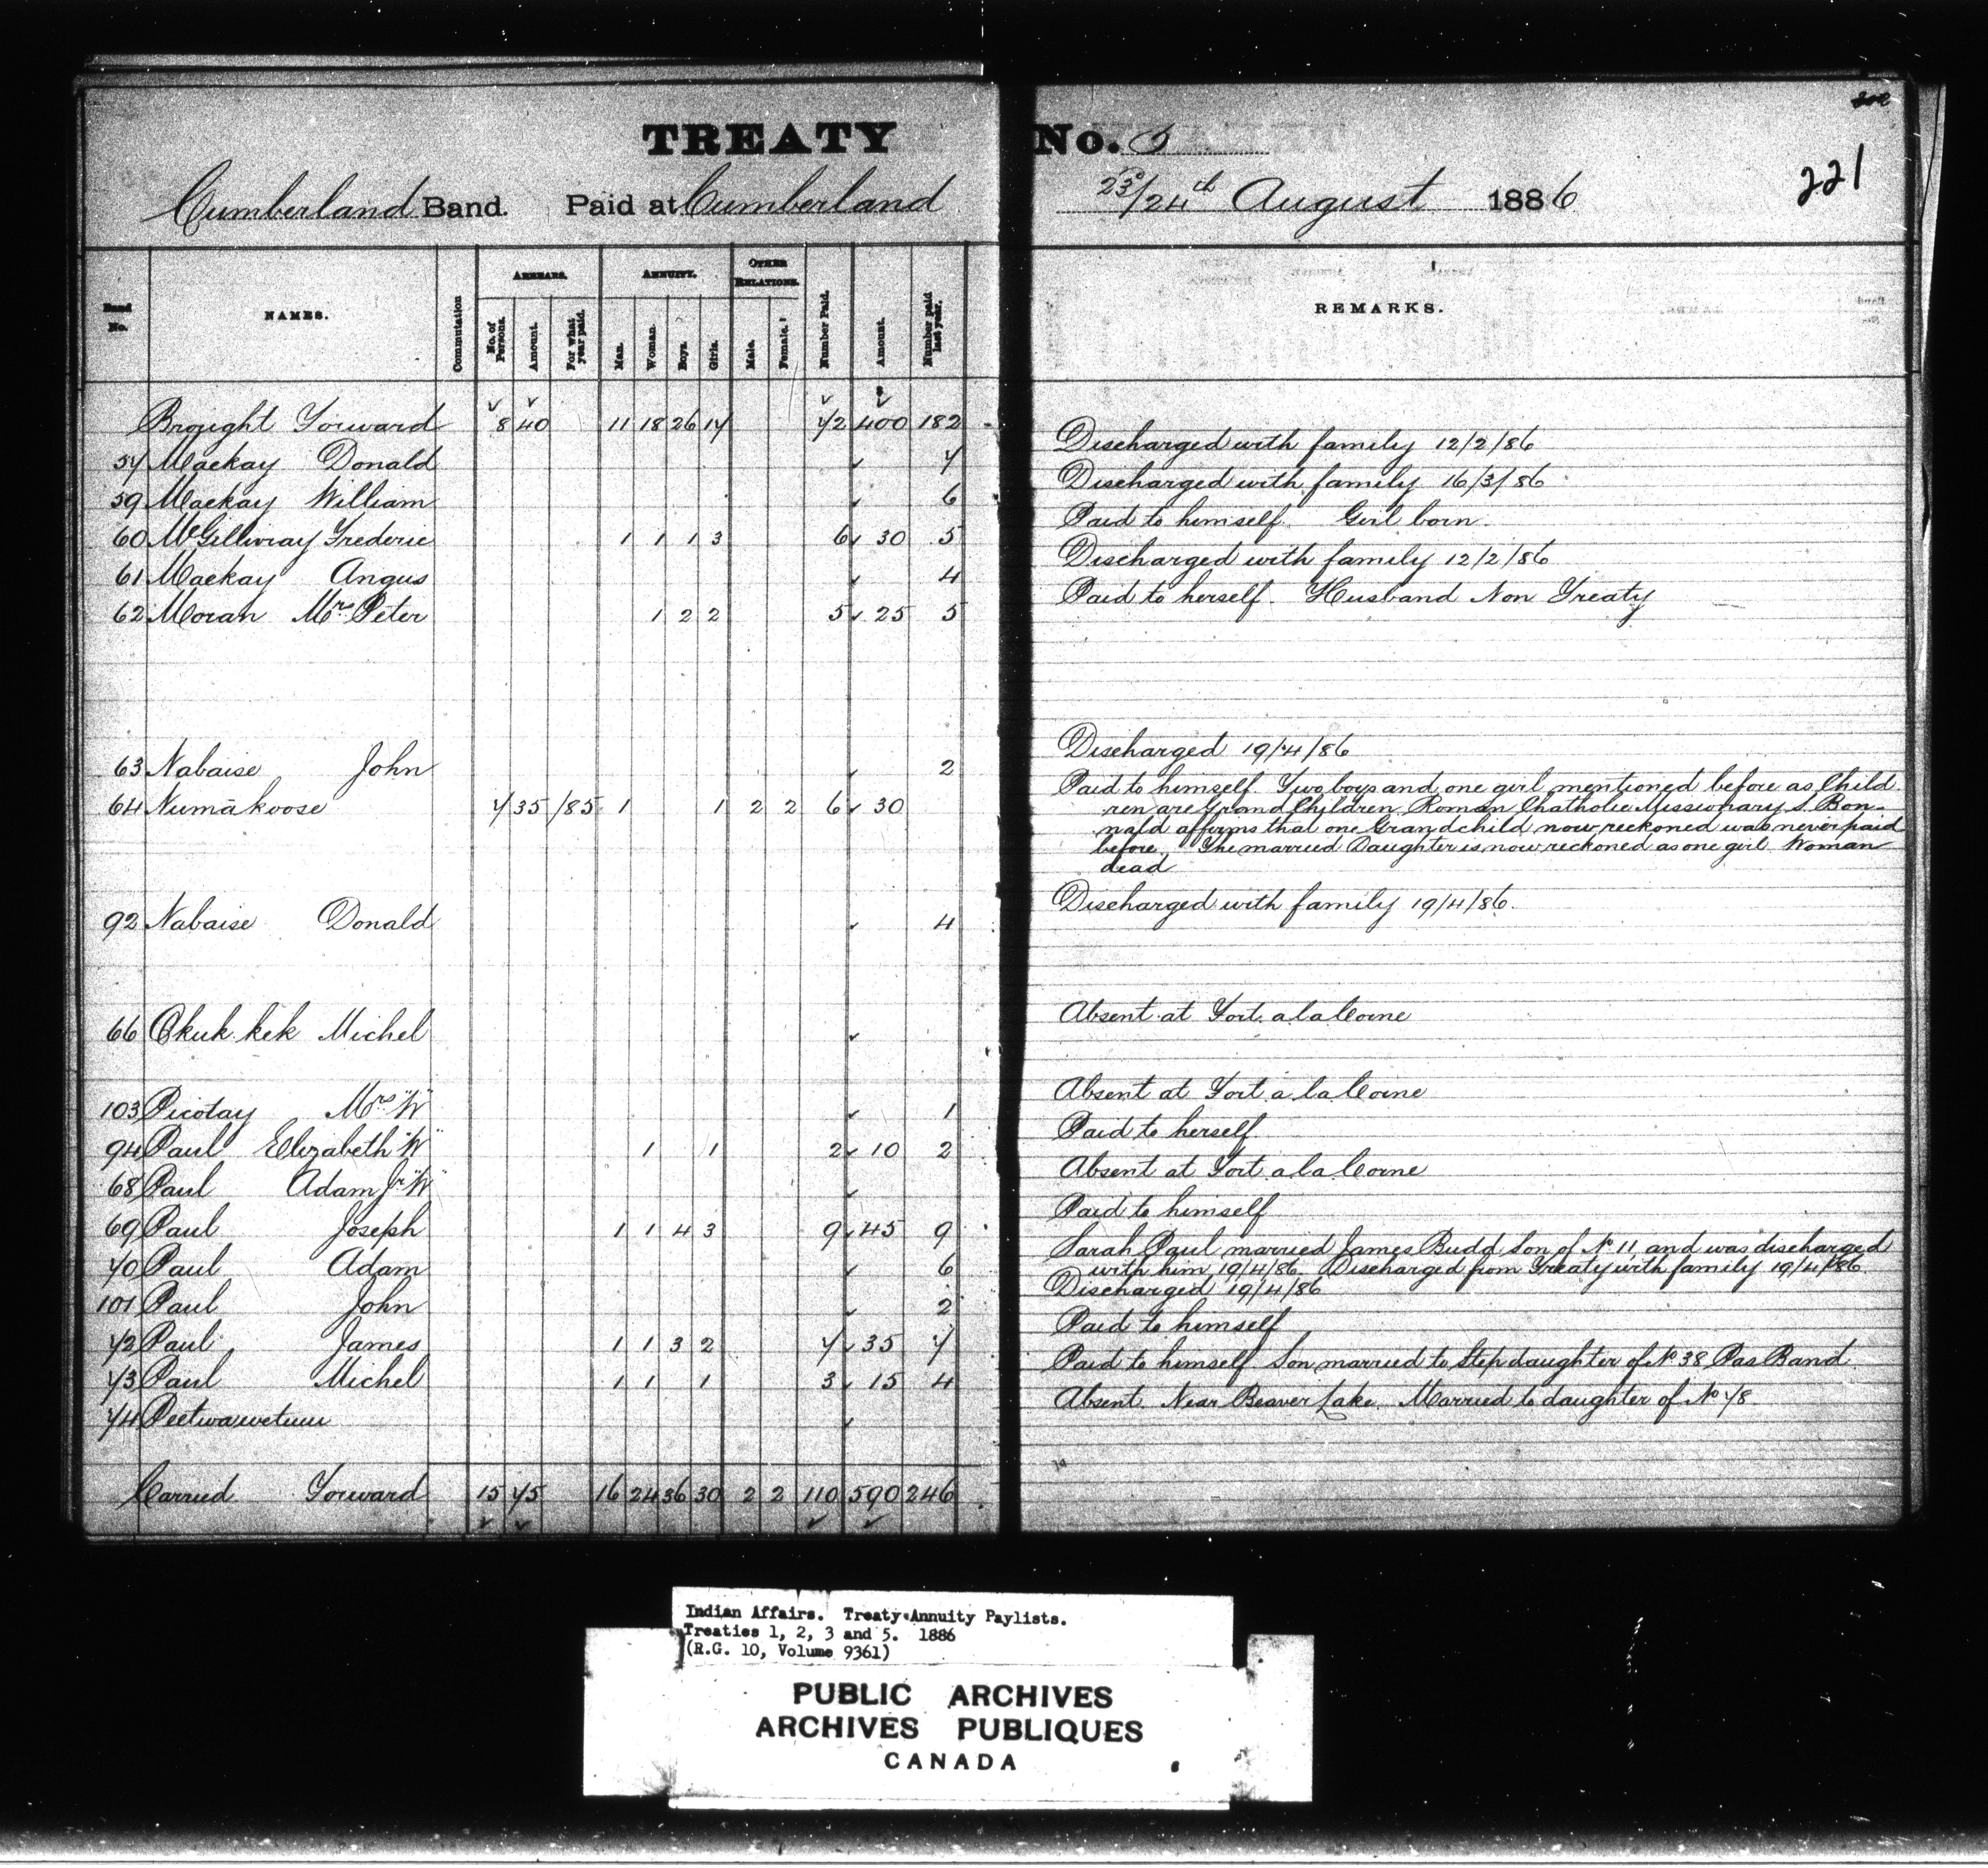 202
TREATY No. 5
221
Cumberland Band. Paid at Cumberland 23d/24th August 1886
Band No. NAMES. Commutation ARREARS. ANNUITY. OTHER RELATIONS. Number Paid. Amount. Number paid last year. REMARKS.
No. of Persons. Amount. For what year paid. Men. Women. Boys. Girls. Male. Female.
Brought Forward 8 40 11 18 26 17 72 400 182
57 Mackay Donald 7 Discharged with family 12/2/86
59 Mackay William 6 Discharged with family 16/3/86
60 McGillivray Frederic 1 1 1 3 6 30 5 Paid to himself. Girl born.
61 Mackay Angus 4 Discharged with family 12/2/86
62 Moran Mrs Peter 1 2 2 5 25 5 Paid to herself. Husband Non Treaty
63 Nabaise John 2 Discharged 19/4/86
64 Numākoose 7 35 /85 1 1 2 2 6 30 Paid to himself. Two boys and one girl mentioned before as Child
ren are Grand Children. Roman Chatholic Missionary S. Bon-
nald affirms that one Grandchild now reckoned was never paid
before. The married Daughter is now reckoned as one girl. Woman
dead
92 Nabaise Donald 4 Discharged with family 19/4/86.
66 Okuk.kek Michel Absent at Fort a la Corne
103 Picotay Mrs "W" 1 Absent at Fort a la Corne
94 Paul Elizabeth "W" 1 1 2 10 2 Paid to herself
68 Paul Adam Jr "W" Absent at Fort a la Corne
69 Paul Joseph 1 1 4 3 9 45 9 Paid to himself
70 Paul Adam 6 Sarah Paul married James Budd Son of No 11 and was discharged
with him 19/4/86. Discharged from Treaty with family 19/4/86.
101 Paul John 2 Discharged 19/4/86
72 Paul James 1 1 3 2 7 35 7 Paid to himself
73 Paul Michel 1 1 1 3 15 4 Paid to himself Son married to Step daughter of No 38 Pas Band
74 Peetwawetum Absent Near Beaver Lake. Married to daughter of No 78.
Carried Forward 15 75 16 24 36 30 2 2 110 590 246
Indian Affairs. Treaty Annuity Paylists.
Treaties 1, 2, 3 and 5. 1886
(R.G. 10, Volume 9361)
PUBLIC ARCHIVES
ARCHIVES PUBLIQUES
CANADA